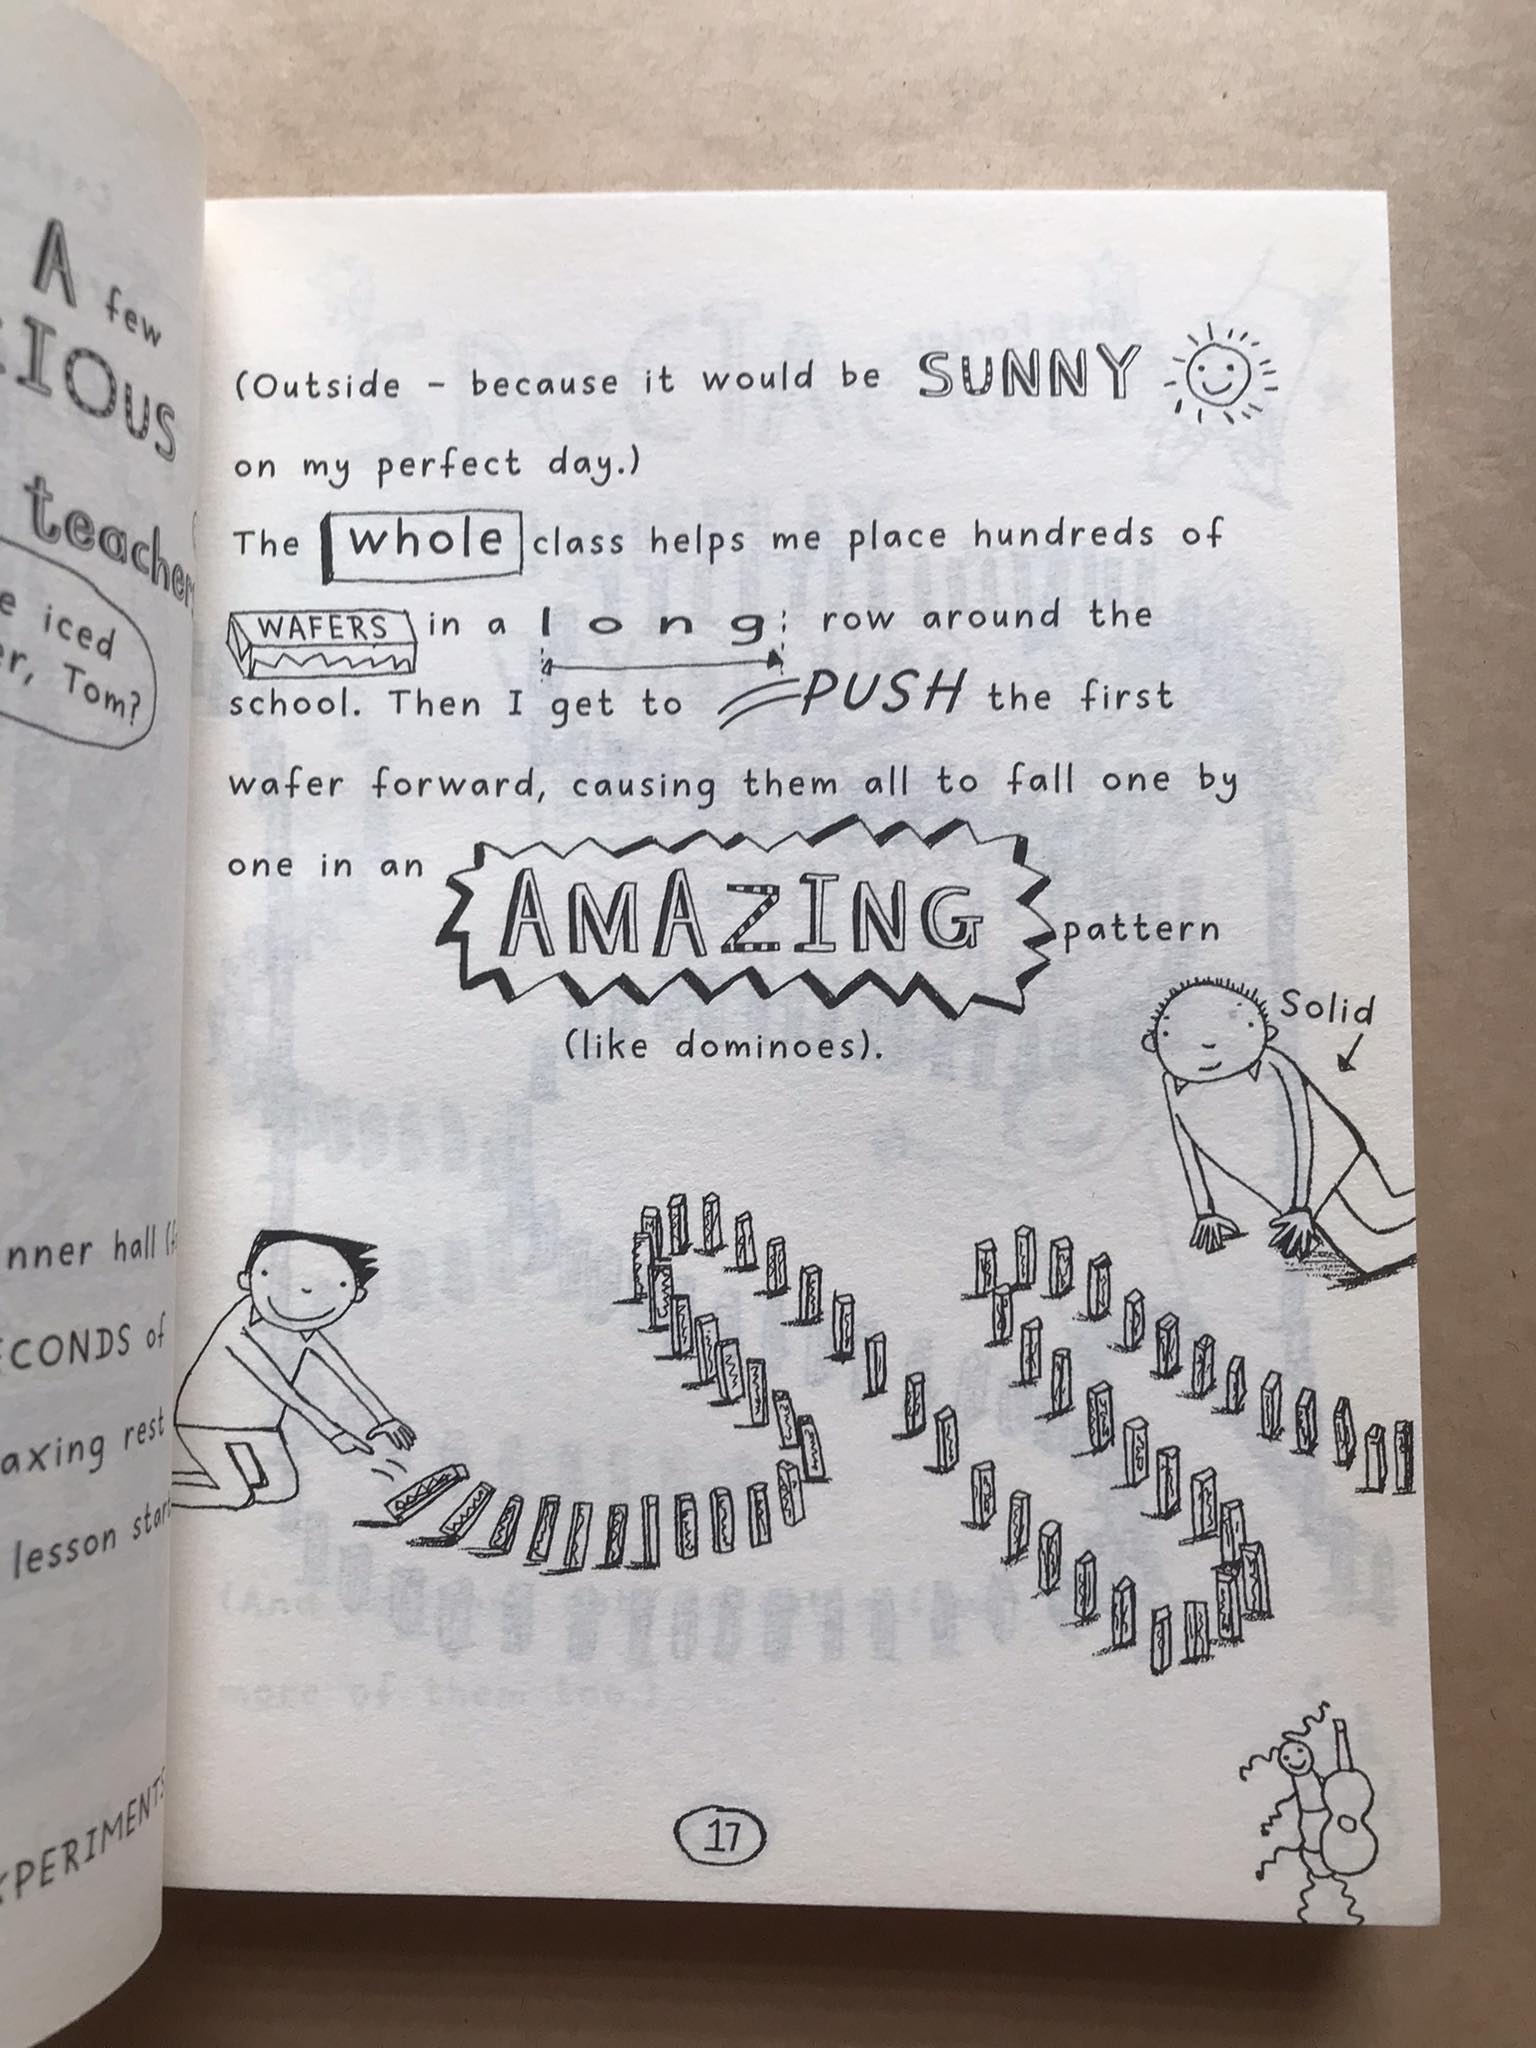 A few
IOUS
teacher
e iced
er, Tom?
nner hall
ECONDS of
axing rest
lesson start
XPERIMENTS
(Outside - because it would be SUNNY
on my perfect day.)
The whole class helps me place hundreds of
WAFERS in a long row around the
school. Then I get to PUSH the first
wafer forward, causing them all to fall one by
one in an AMAZING pattern
(like dominoes).
Solid
17